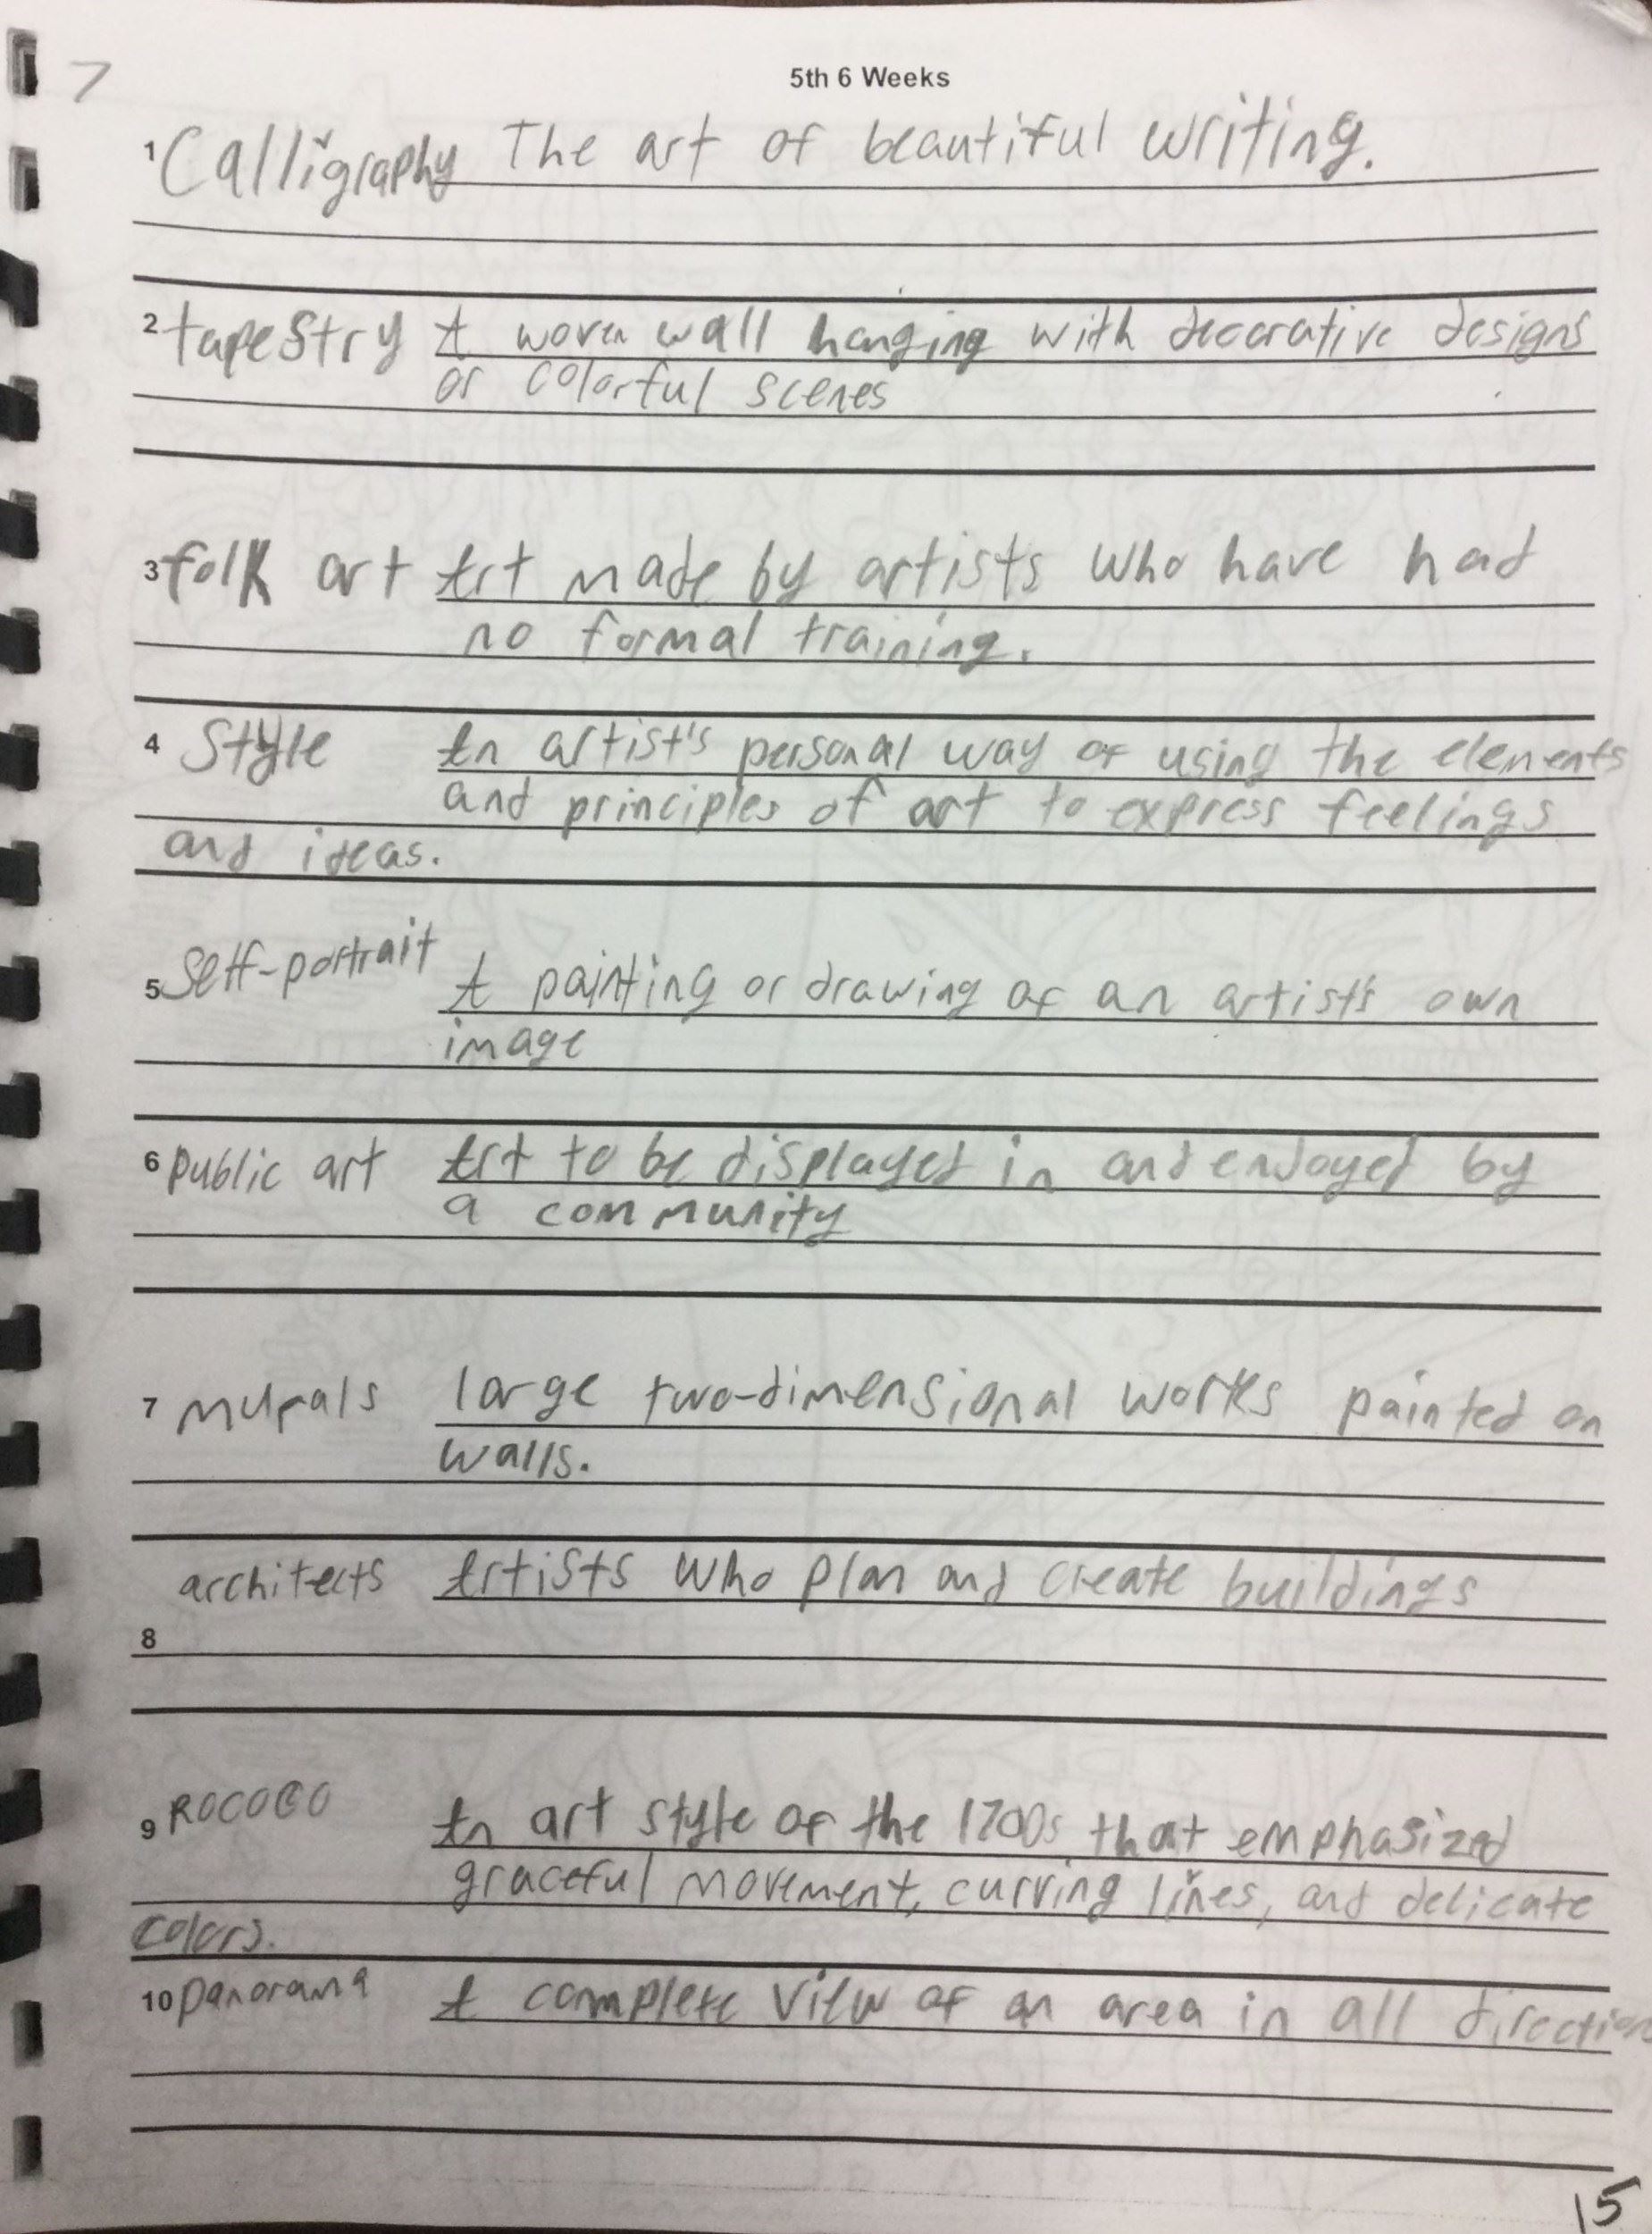 7
5th 6 Weeks
1 Calligraphy The art of beautiful writing.
2 tapestry A woven wall hanging with decorative designs
or colorful scenes
3 folk art Art made by artists who have had
no formal training.
4 Style An artist's personal way of using the elements
and principles of art to express feelings
and ideas.
5 Self-portrait A painting or drawing of an artist's own
image
6 public art Art to be displayed in and enjoyed by
a community
7 murals large two-dimensional works painted on
walls.
architects Artists who plan and create buildings
8
9 Rococo An art style of the 1700s that emphasized
graceful movement, curving lines, and delicate
colors.
10 panorama A complete view of an area in all direction
15